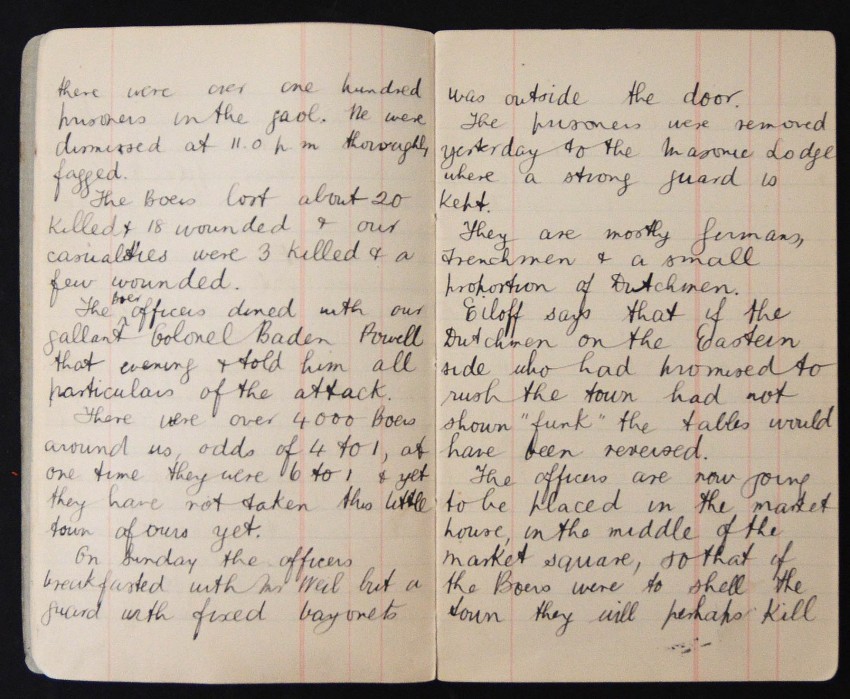 there were over one hundred
prisoners in the gaol. We were
dismissed at 11.0 p.m thoroughly
fagged.
The Boers lost about 20
killed & 18 wounded & our
casualties were 3 killed & a
few wounded.
The Boer officers dined with our
gallant Colonel Baden Powell
that evening & told him all
particulars of the attack.
There were over 4000 Boers
around us, odds of 4 to 1, at
one time they were 6 to 1 & yet
they have not taken this little
town of ours yet.
On Sunday the officers
breakfasted with Mr Weil but a
guard with fixed bayonets
was outside the door.
The prisoners were removed
yesterday to the Masonic Lodge
where a strong guard is
kept.
They are mostly Germans,
Frenchmen & a small
proportion of Dutchmen.
Eiloff says that if the
Dutchmen on the Eastern
side who had promised to
rush the town had not
shown "funk" the tables would
have been reversed.
The officers are now going
to be placed in the market
house, in the middle of the
market square, so that if
the Boers were to shell the
town they will perhaps kill